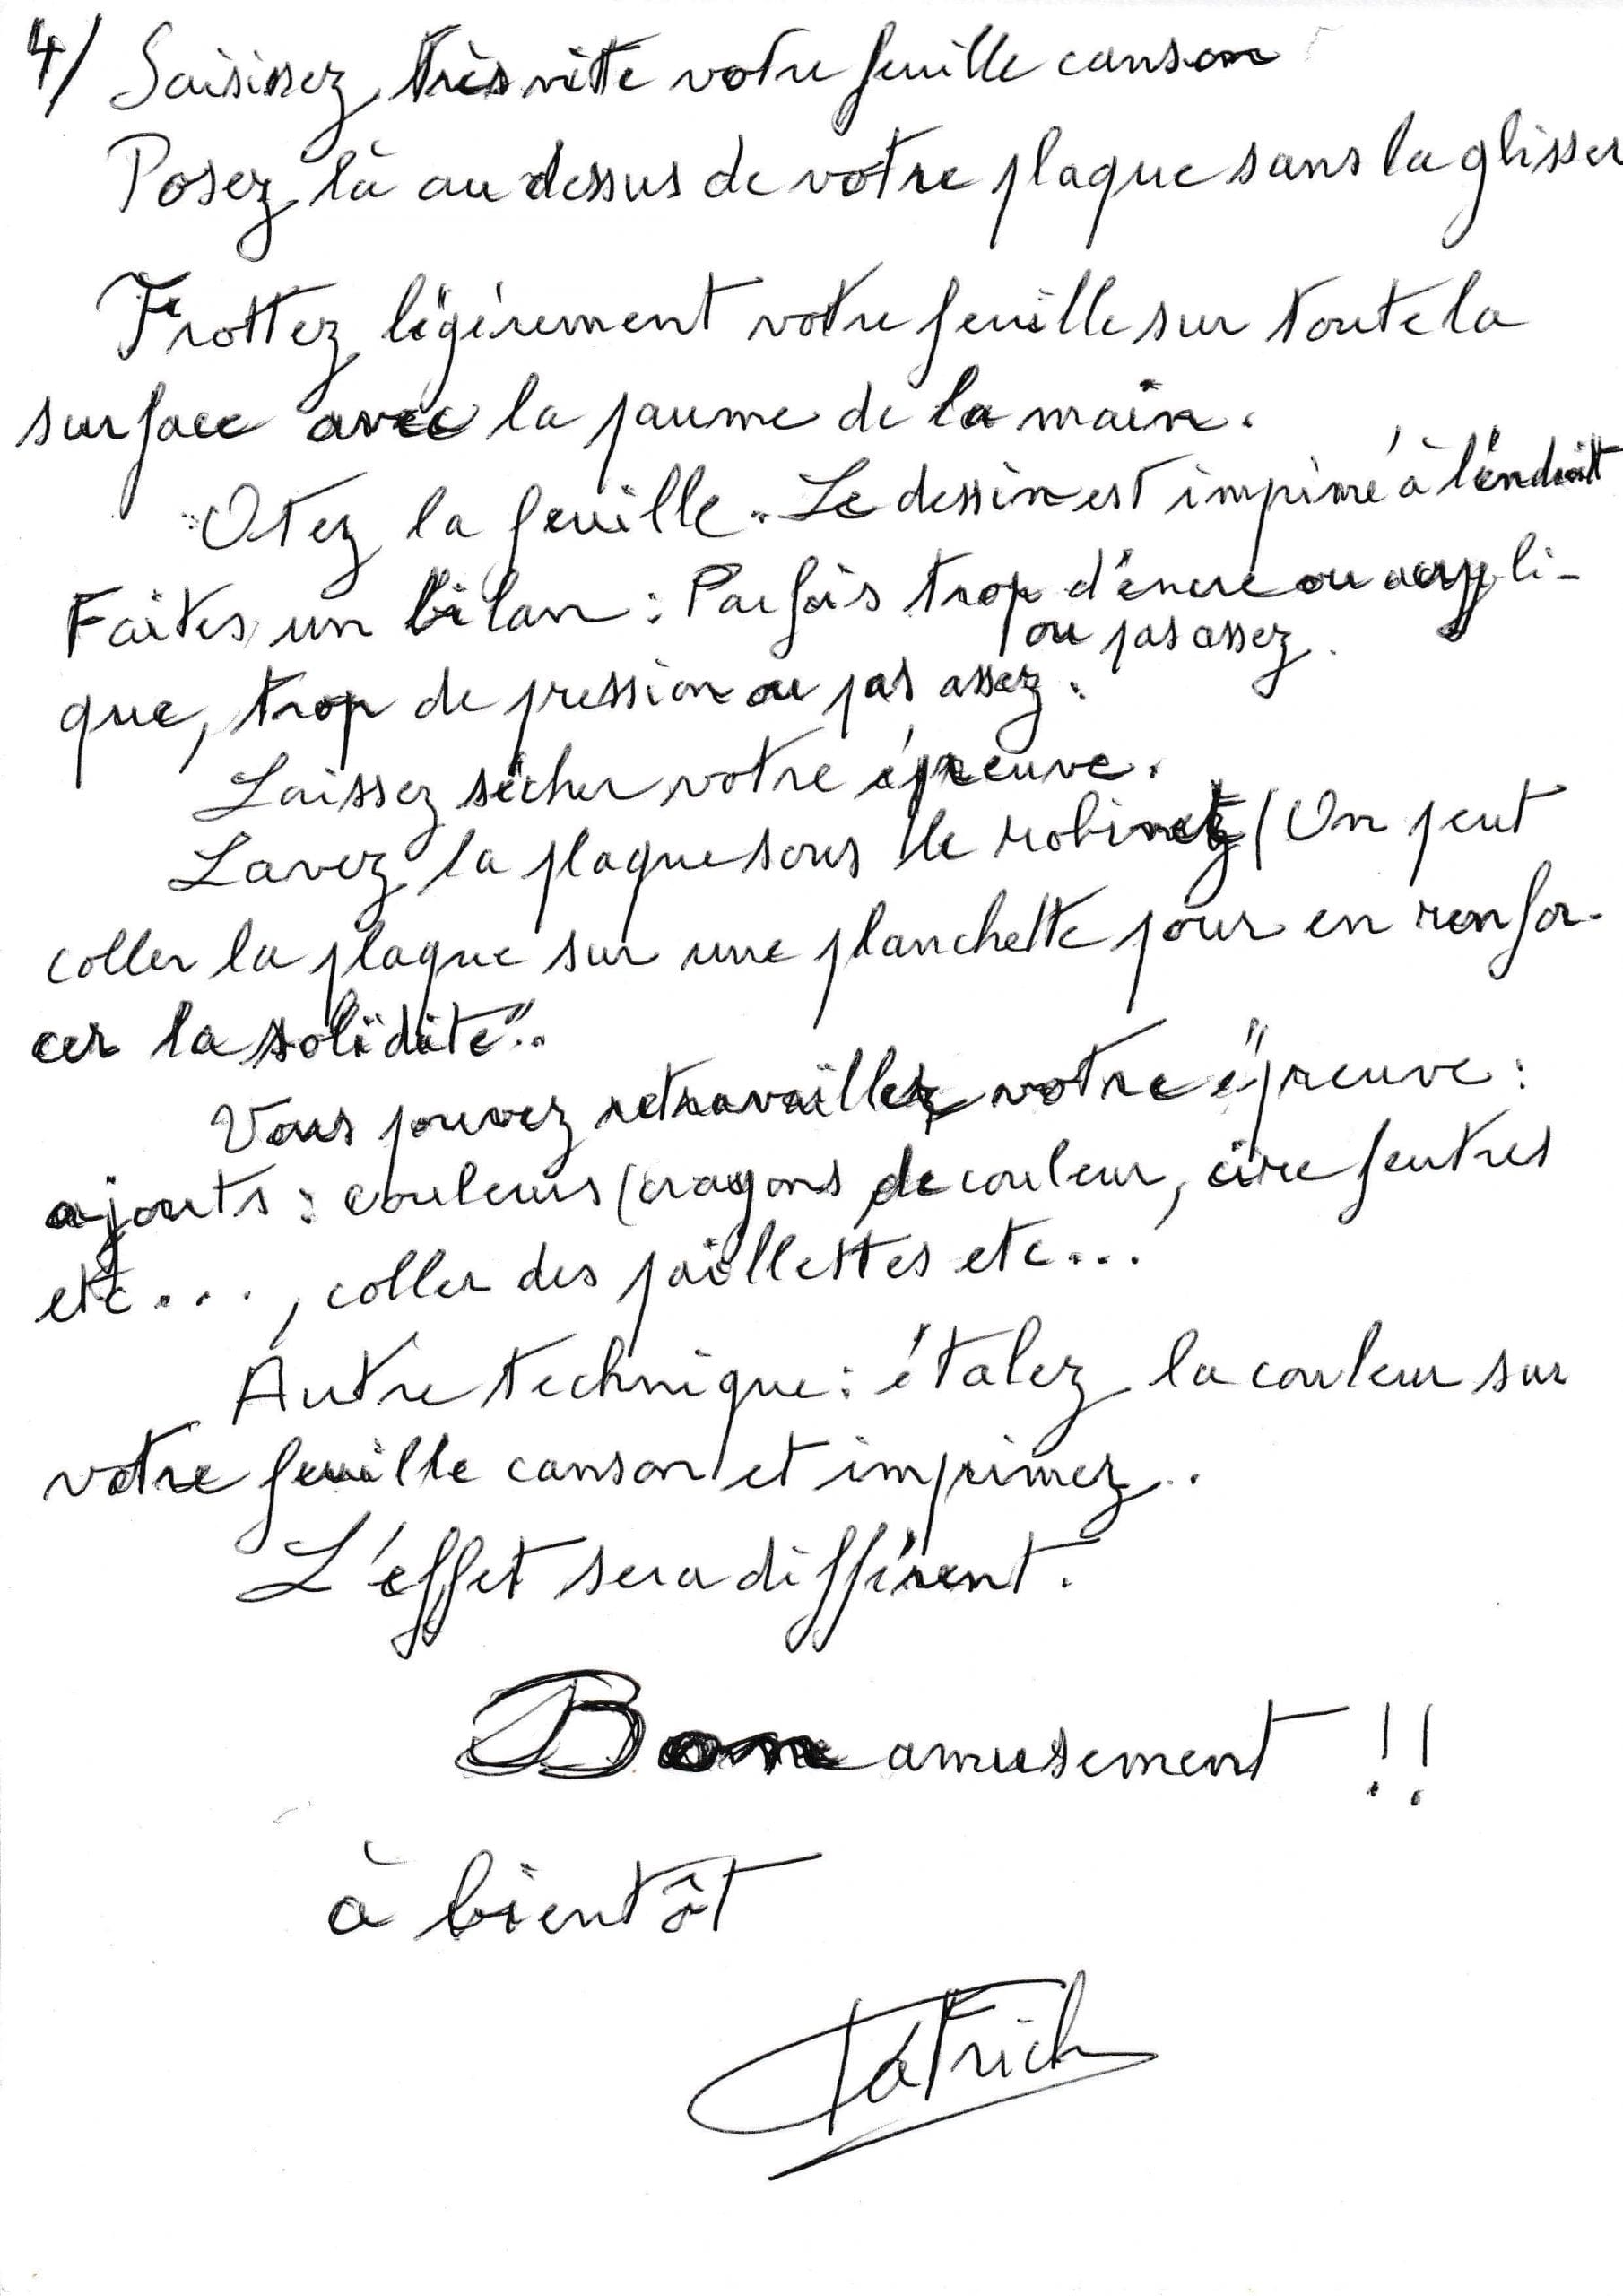 4/ Saisissez très vite votre feuille canson
Posez là au dessus de votre plaque sans la glisser
Frottez légèrement votre feuille sur toute la
surface avec la paume de la main.
Otez la feuille. Le dessin est imprimé à l'endroit
Faites un bilan : Parfois trop d'encre ou acryli-
ou pas assez.
que, trop de pression ou pas assez.
Laissez sécher votre épreuve.
Lavez la plaque sous le robinet (On peut
coller la plaque sur une planchette pour en renfor-
cer la solidité".
Vous pouvez retravailler votre épreuve :
ajouts : couleurs (crayons de couleur, cire feutres
etc..., coller des paillettes etc...
Autre technique : étalez la couleur sur
votre feuille canson et imprimez..
L'effet sera différent.
Bon amusement !!
à bientôt
Patrick